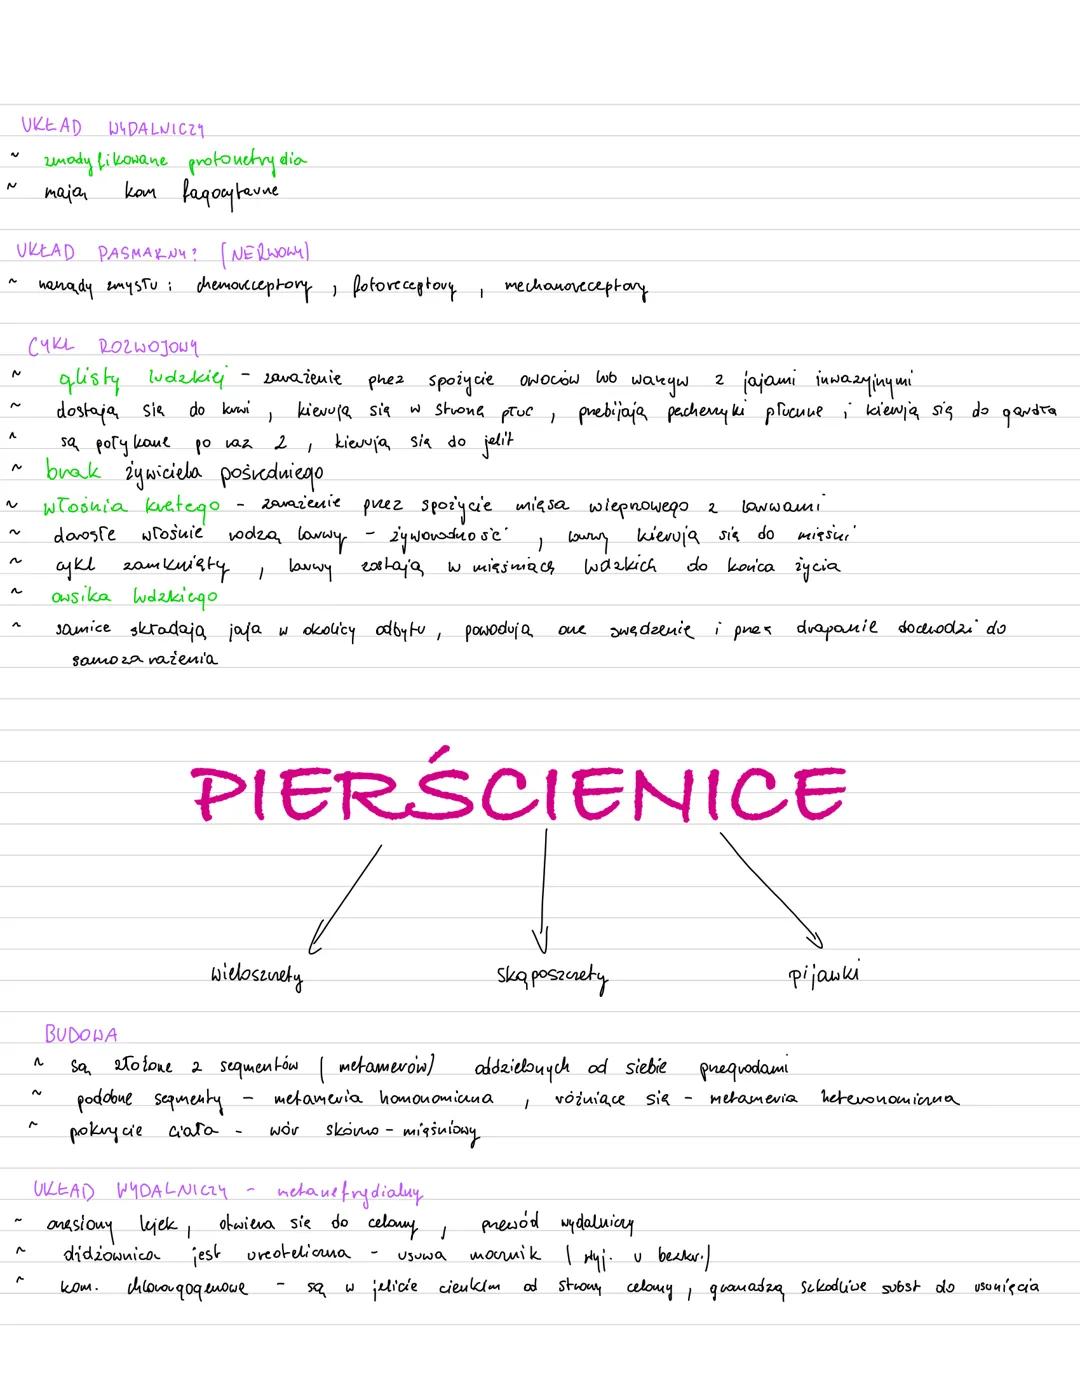 UKŁAD WYDALNICZY
~ zmodyfikowane protonefrydia
~ mają kom fagocytarne
UKŁAD PASMARNY? (NERWOWY)
~ narządy zmysłu : chemoreceptory , fotoreceptory , mechanoreceptory
CYKL ROZWOJOWY
~ glisty ludzkiej - zarażenie przez spożycie owoców lub warzyw z jajami inwazyjnymi
~ dostają się do krwi , kierują się w stronę płuc , przebijają pęcherzyki płucne i kierują się do gardła
~ są połykane po raz 2 , kierują się do jelit
~ brak żywiciela pośredniego
~ włośnia krętego - zarażenie przez spożycie mięsa wieprzowego z larwami
~ dorosłe włośnie rodzą larwy - żyworodność , larwy kierują się do mięśni
~ cykl zamknięty , larwy zostają w mięśniach ludzkich do końca życia
~ owsika ludzkiego
~ samice składają jaja w okolicy odbytu , powodują one swędzenie i przez drapanie dochodzi do
samozarażenia
PIERŚCIENICE
wieloszczety skąposzczety pijawki
BUDOWA
~ są złożone z segmentów (metamerów) oddzielonych od siebie przegrodami
~ podobne segmenty - metameria homonomiczna , różniące się - metameria heteronomiczna
~ pokrycie ciała - wór skórno-mięśniowy
UKŁAD WYDALNICZY - metanefrydialny
~ orzęsiony lejek , otwiera się do celomy , przewód wydalniczy
~ dżdżownica jest ureoteliczna - usuwa mocznik (wyj. u bezkr.)
~ kom. chloragogenowe - są w jelicie cienkim od strony celomy , gromadzą szkodliwe subst do usunięcia